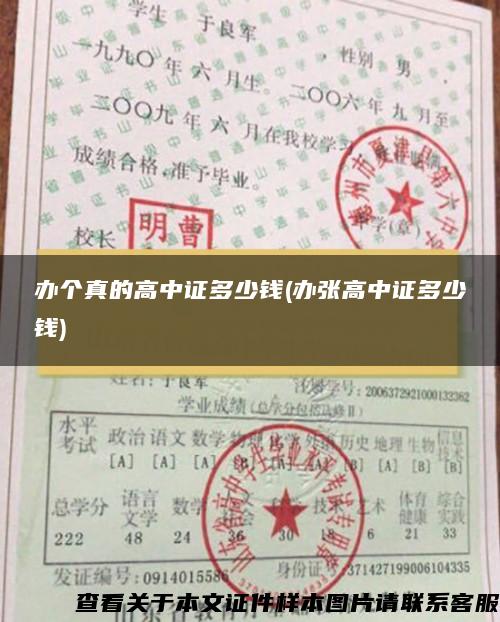 学生 于良军 ，性别 男 .
一九九〇 年 六 月生。 二〇〇六 年 九 月至
二〇〇九 年 六 月在我校学习
成绩合格,准予毕业。
德州市夏津县第六中学
校长
明曹
学(章)
办个真的高中证多少钱(办张高中证多少
钱)
姓名: 于良军 注册学号: 2006372921000132362
学业成绩 (总学分包括选修Ⅱ)
水平考试 政治 语文 数学 物理 化学 外语 历史 地理 生物 信息技术
[A] [A] [A] [B] [B] [A] [B] [B]
总学分 语言文学 数学 科学 技术 艺术 体育健康 综合实践
222 48 24 36 30 18 6 21 33
发证编号: 0914015586 身份证号: 371427199006104335
查看关于本文证件样本图片请联系客服